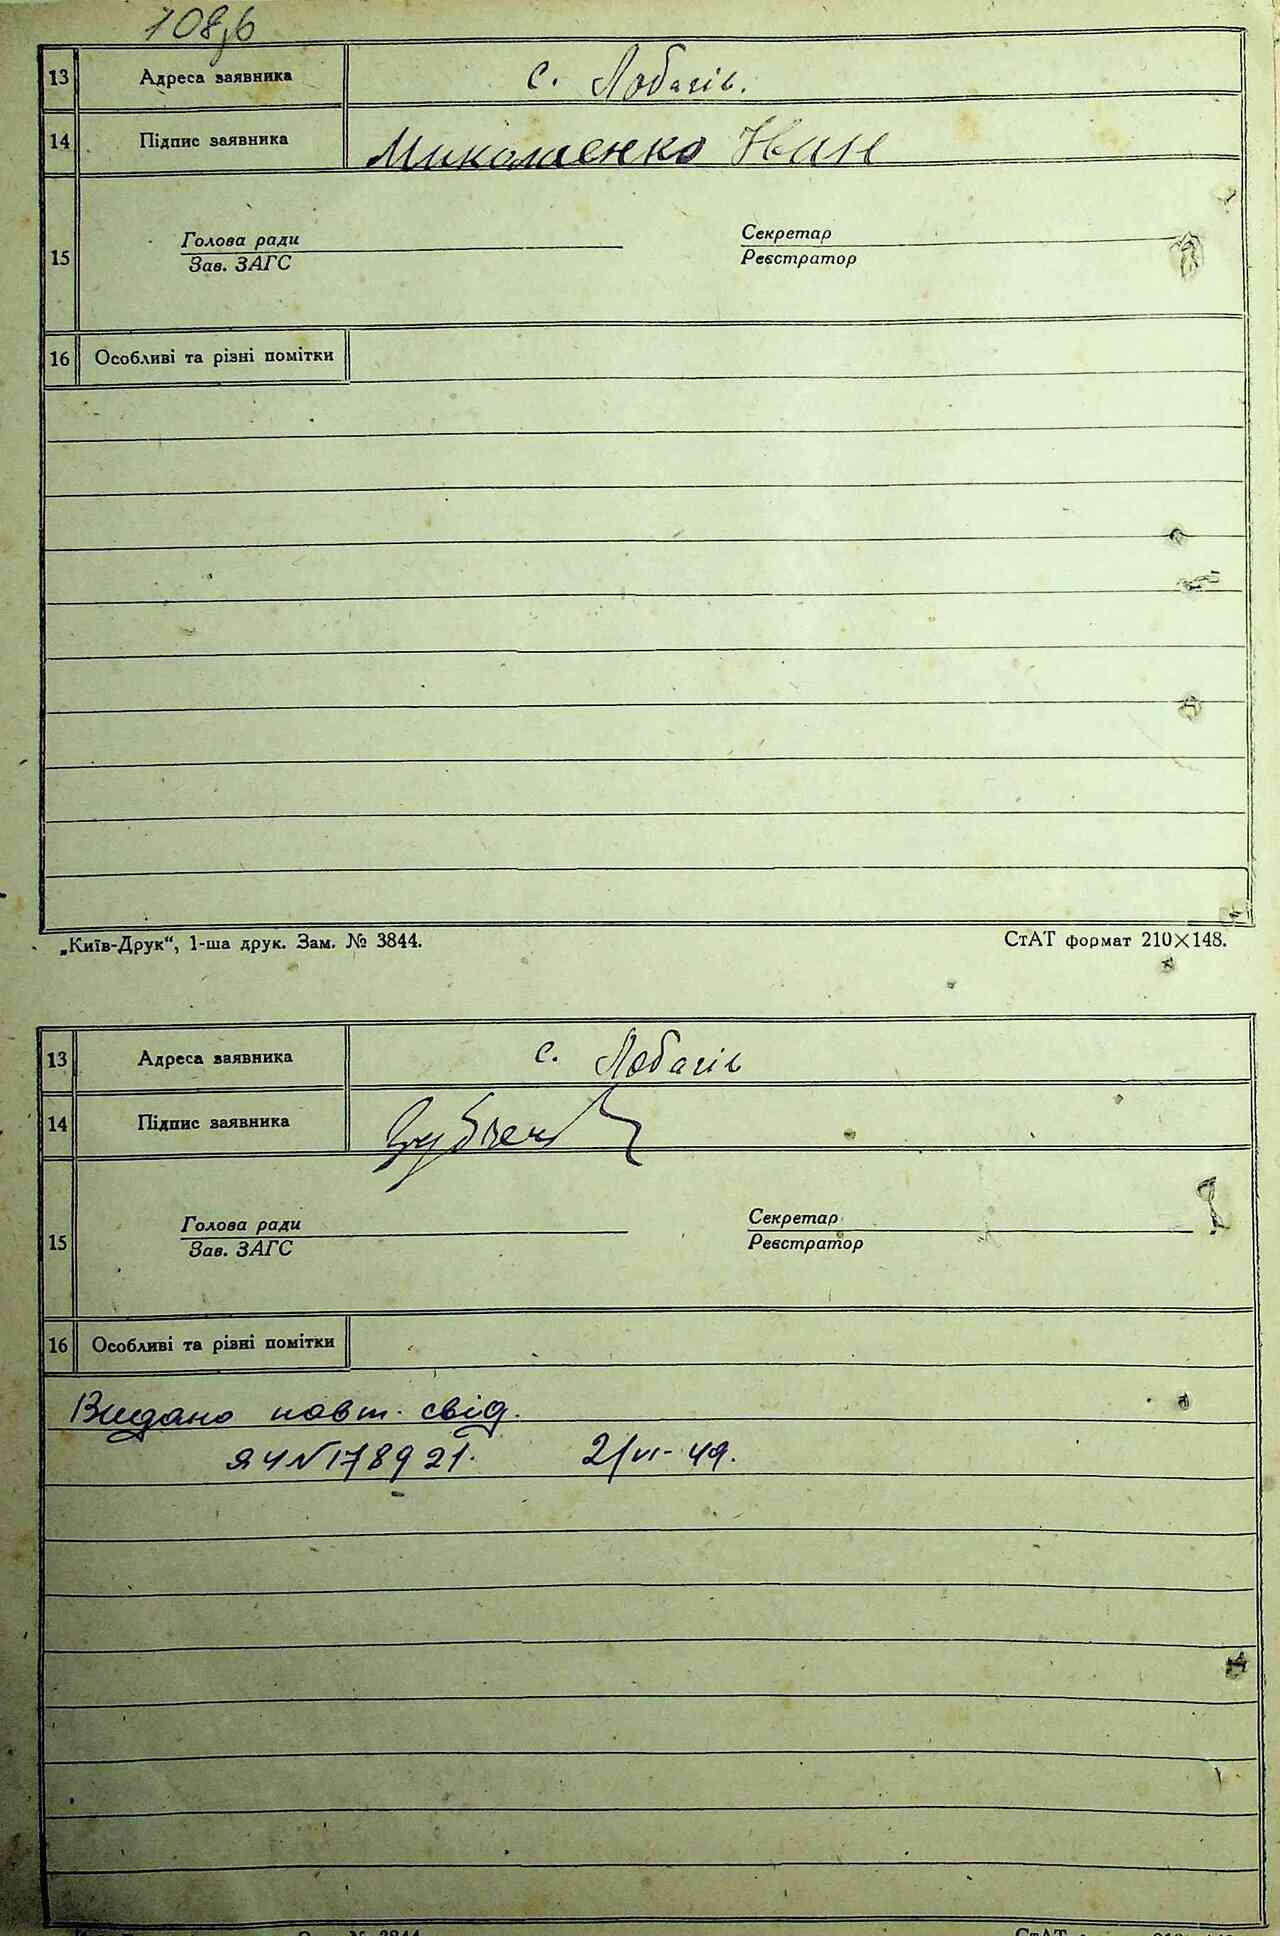 13 Адреса заявника с. Лобачів.
14 Підпис заявника Миколаенко Иван
15
Голова ради Секретар
Зав. ЗАГС Реєстратор
16 Особливі та різні помітки
„Київ-Друк“, 1-ша друк. Зам. № 3844. СтАТ формат 210×148.
13 Адреса заявника с. Лобачів
14 Підпис заявника
15
Голова ради Секретар
Зав. ЗАГС Реєстратор
16 Особливі та різні помітки
Видано повт. свід.
ЯЧ № 178921. 21/VI- 49.